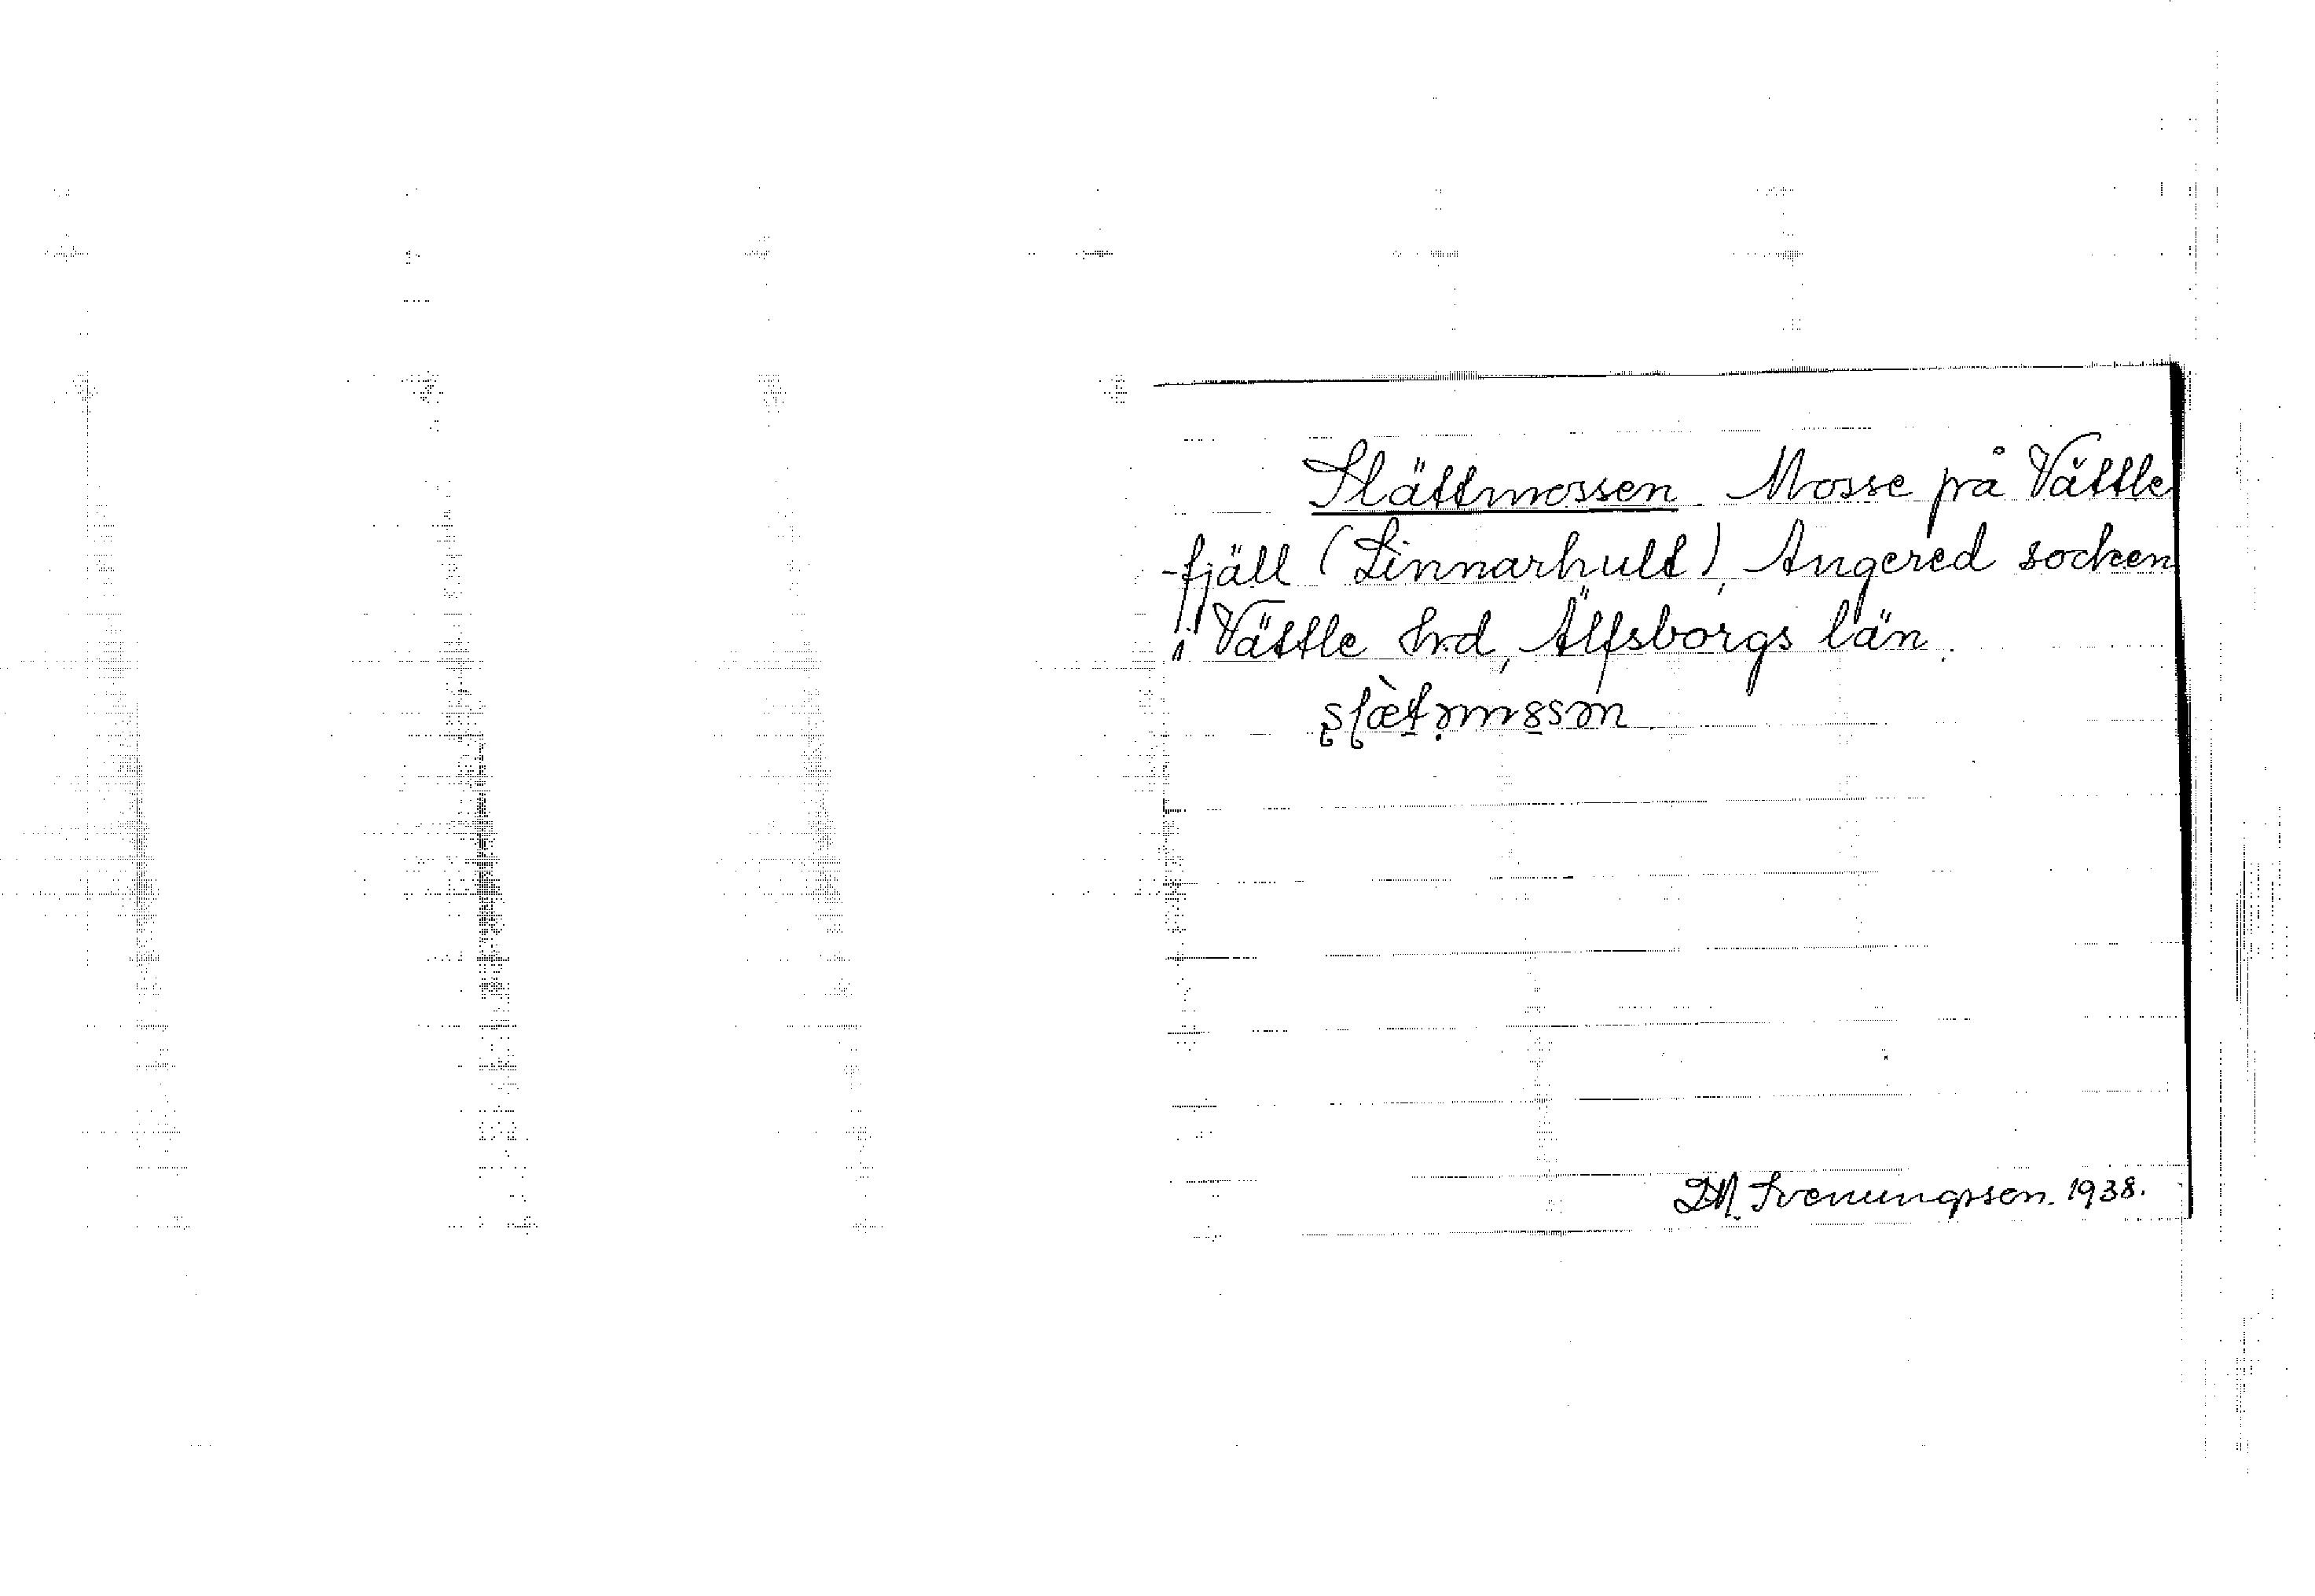 Slättmossen Mosse på Vättle
-fjäll (Linnarhult), Angered socken
i Vättle hrd, Älfsborgs län.
D.N. Svenungsson. 1938.